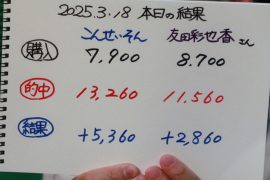 2025.3.18 本日の結果
こんせいそん 友田彩也香さん
購入 7,900 8.700
的中 13,260 11,560
結果 +5,360 +2,860